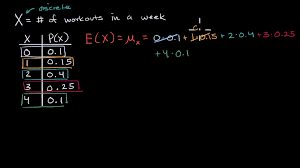 discrete
X = # of workouts in a week
X P(X)
0 0.1
1 0.15
2 0.4
3 0.25
4 0.1
E(X) = μx = 0·0.1 + 1·0.15 + 2·0.4 + 3·0.25
+ 4·0.1